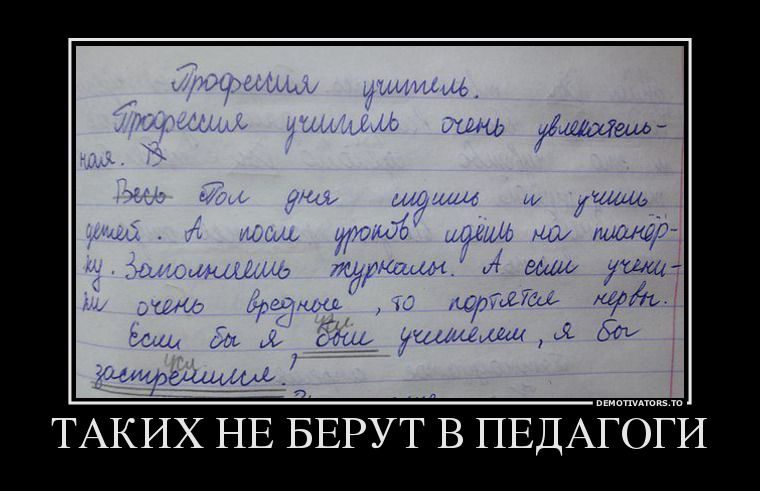 Профессия учитель.
Профессия учитель очень увлекатель-
ная. В
Весь Пол дня сидишь и учишь
детей. А после уроков идёшь на планёр-
ку. Заполняешь журналы. А если учени-
ки очень вредные, то портятся нервы.
Если бы я был учителем, я бы
усл.
застрелился.
усл
DEMOTIVATORS.TO
ТАКИХ НЕ БЕРУТ В ПЕДАГОГИ